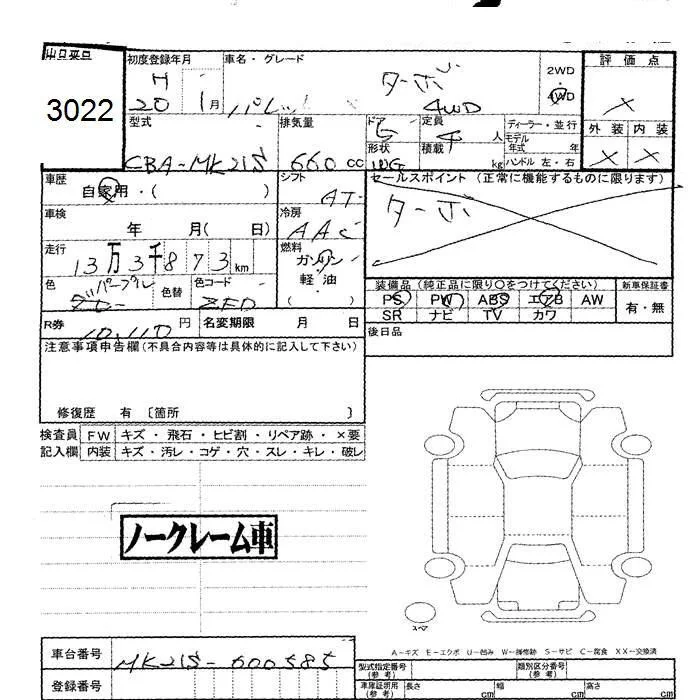 出品票
3022
初度登録年月
H 20 1月
車名・グレード
パレット ターボ 4WD
2WD
4WD
評価点
×
外装 内装
× ×
型式
CBA-MK21S
排気量
660 cc
ドア
5
形状
WG
定員
4 人
積載 kg
ディーラー・並行
モデル年式 年
ハンドル 左・右
車歴
自家用・( )
シフト
AT
セールスポイント (正常に機能するものに限ります)
ターボ
車検
年 月( 日)
冷房
AAC
走行
13万3千873 km
燃料
ガソリン
軽・油
( )
色
パープル
色替
色コード
ZFD
装備品 (純正品に限り○をつけてください)
PS PW ABS エアB AW
SR ナビ TV カワ
新車保証書
有・無
R券
10,110 円
名変期限 月 日
後日品
注意事項申告欄(不具合内容等は具体的に記入して下さい)
修復歴 有 〔箇所 〕
検査員 FW キズ・飛石・ヒビ割・リペア跡・×要
記入欄 内装 キズ・汚レ・コゲ・穴・スレ・キレ・破レ
ノークレーム車
スペア
A-キズ E-エクボ U-凹み W-補修跡 S-サビ C-腐食 XX-交換済
車台番号
MK21S-600585
登録番号
型式指定番号
(参考)
類別区分番号
(参考)
車庫証明用
(参考)
長さ cm
幅 cm
高さ cm